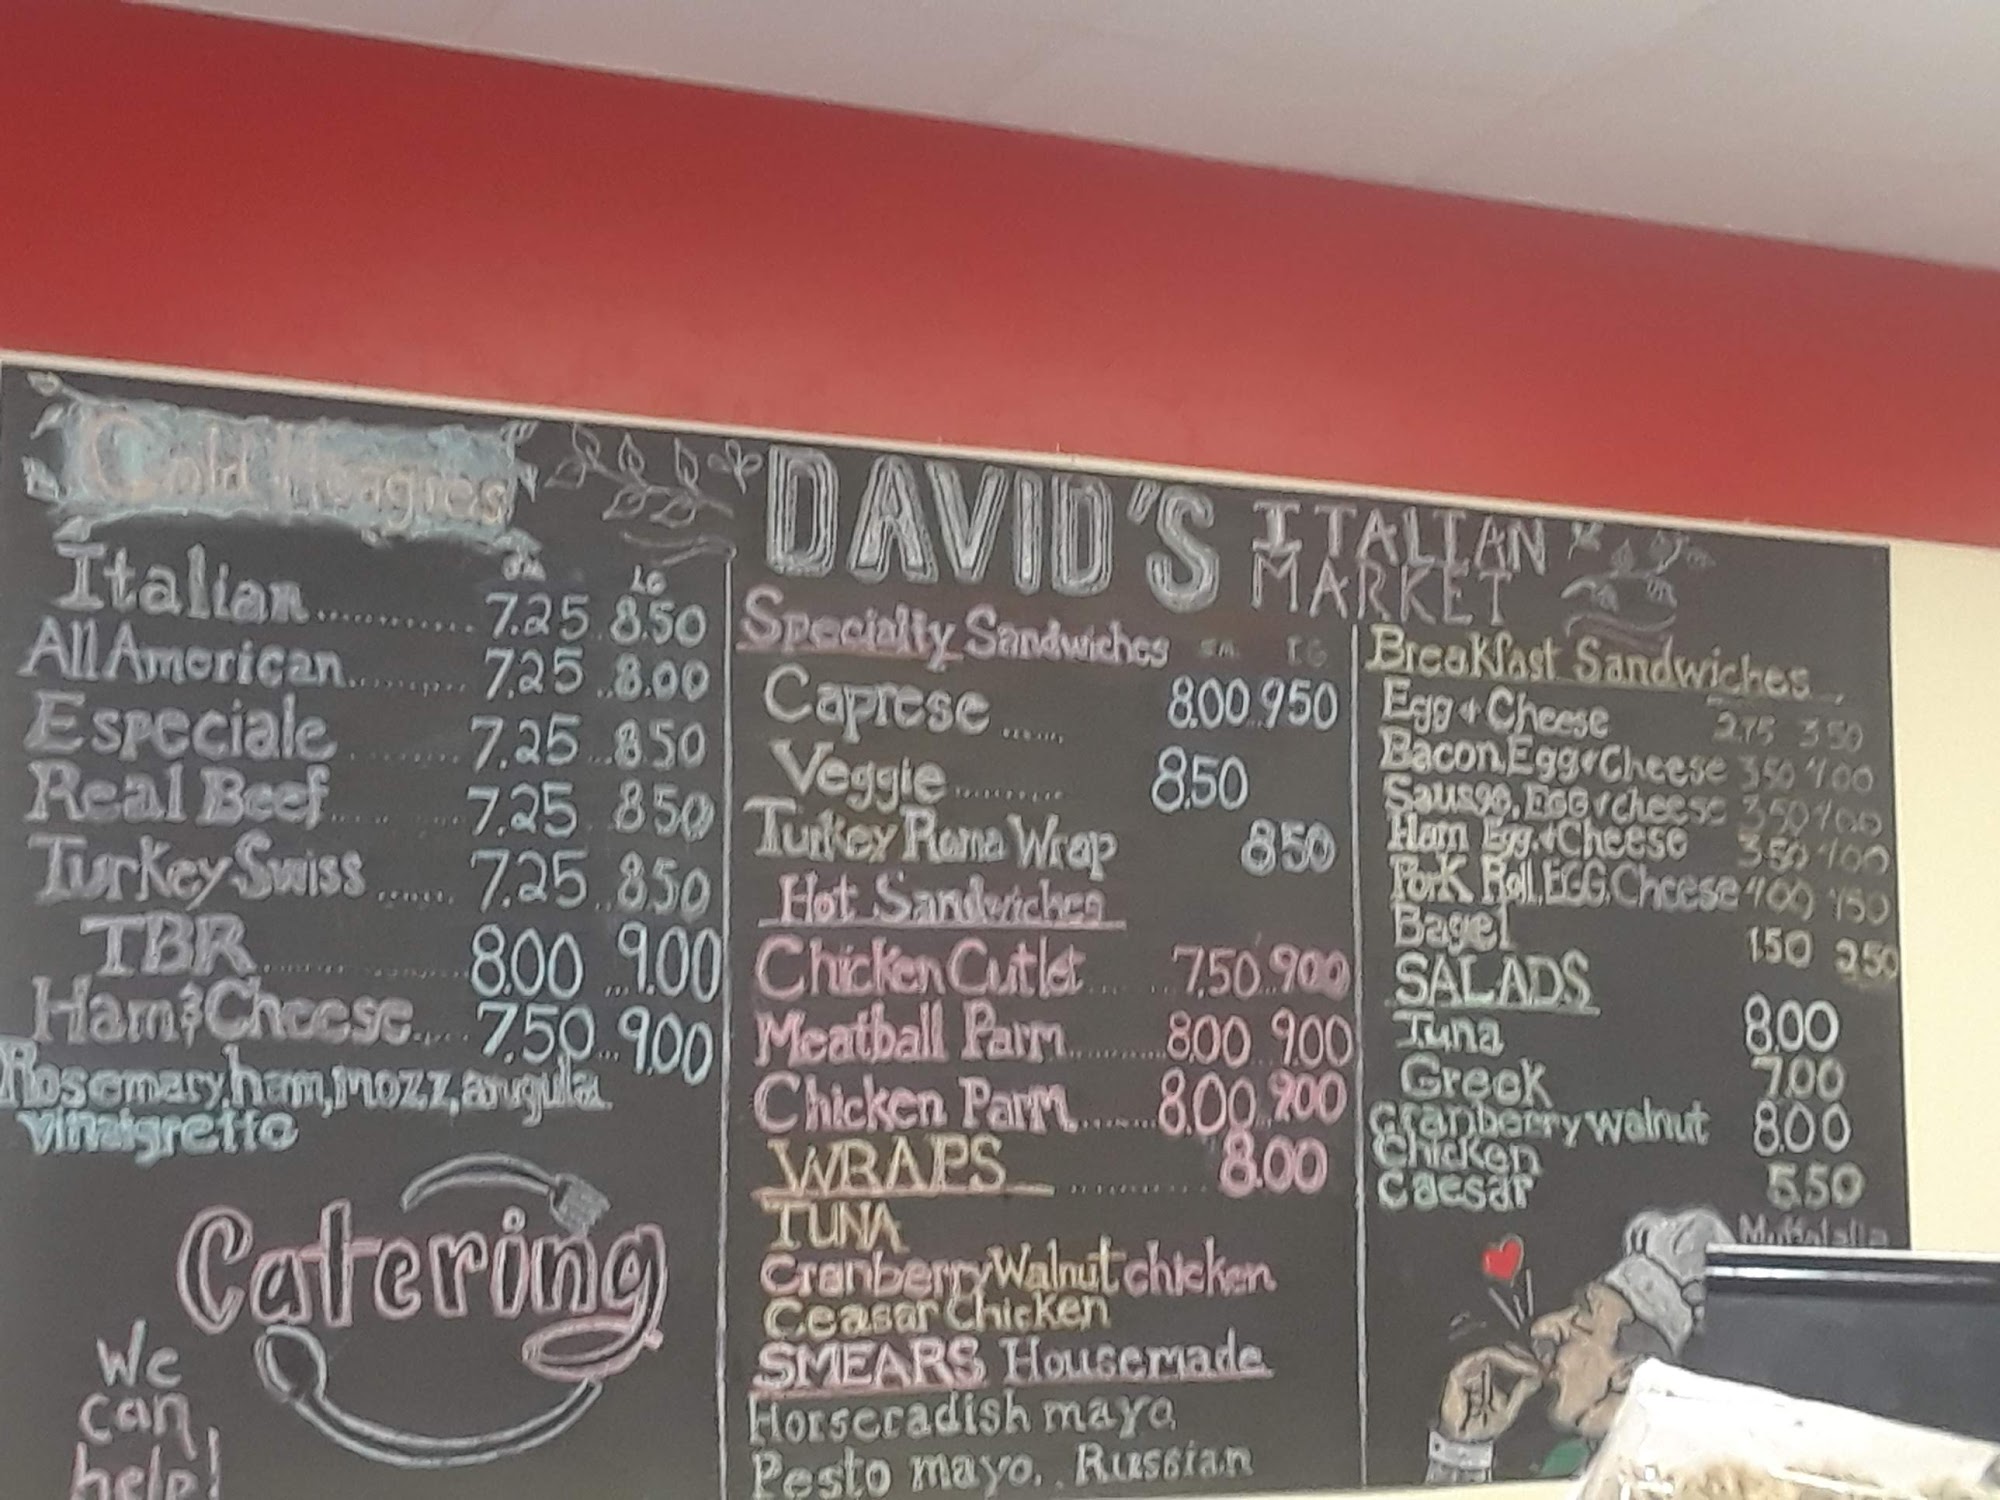 Cold Hoagies
SM LG
Italian............ 7.25 8.50
All American............ 7.25..8.00
Especiale ......... 7.25...8.50
Real Beef....... 7.25 8.50
Turkey Swiss ...... 7.25..8.50
TBR................. 8.00...9.00
Ham&Cheese..... 7.50...9.00
Rosemary, ham, mozz, arugula
vinaigrette
Catering
We
can
help!
DAVID'S ITALIAN
MARKET
Specialty Sandwiches SM LG
Caprese ...... 8.00..950
Veggie.......... 8.50
Turkey Roma Wrap 850
Hot Sandwiches
Chicken Cutlet.... 7.50..900
Meatball Parm.......... 8.00..9.00
Chicken Parm....... 8.00..900
WRAPS ........... 8.00
TUNA
Cranberry Walnut chicken
Ceasar Chicken
SMEARS Housemade
Horseradish mayo
Pesto mayo.. Russian
Breakfast Sandwiches
Egg + Cheese 2.75 3.50
Bacon, Egg + Cheese 3.50 4.00
Sausge, EGG + cheese 3.50 4.00
Ham Egg + Cheese 3.50 4.00
Pork Roll, EGG, Cheese 4.00 4.50
Bagel 1.50 2.50
SALADS
Tuna 8.00
Greek 7.00
Cranberry Walnut 8.00
Chicken
Caesar 5.50